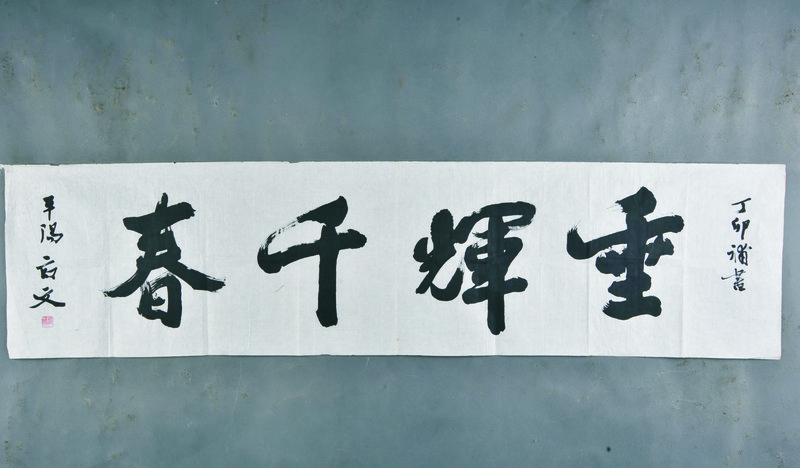 丁卯補書
垂輝千春
平陽
文